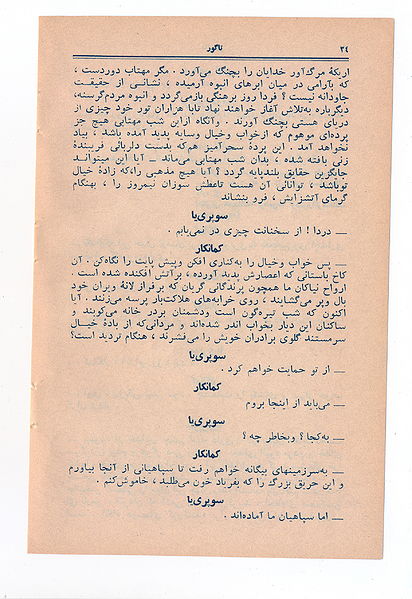 ۲۴
تاگور
اریکهٔ مرگ‌آور خدایان را بچنگ می‌آورد . مگر مهتاب دوردست ،
که بآرامی در میان ابرهای انبوه آرمیده ، نشانی از حقیقت
جاودانه نیست ؟ فردا روز برهنگی بازمی‌گردد و انبوه مردم‌گرسنه،
دیگرباره به‌تلاش آغاز خواهند نهاد تابا هزاران تور خود چیزی از
دریای هستی بچنگ آورند . وآنگاه ازاین شب مهتابی هیچ جز
پرده‌ای موهوم که ازخواب وخیال وسایه پدید آمده باشد ، بیاد
نخواهد آمد . این پردهٔ سحرآمیز هم‌که بدست دلربائی فریبندهٔ
زنی بافته شده ، بدان شب مهتابی می‌ماند ــ آیا این میتواند
جایگزین حقایق بلندپایه گردد ؟ آیا هیچ مذهبی را،که زادهٔ خیال
توباشد ، توانائی آن هست تاعطش سوزان نیمروز را ، بهنگام
گرمای آتشزایش ، فرو بنشاند
سوپری‌یا
ــ دردا ! از سخنانت چیزی در نمی‌یابم .
کمانکار
ــ پس خواب وخیال را به‌کناری افکن وپیش پایت را نگاه‌کن . آن
کاخ باستانی که اعصارش پدید آورده ، برآتش افکنده شده است .
ارواح نیاکان ما همچون پرندگانی گریان که برفراز لانهٔ ویران خود
بال وپر می‌گشایند ، روی خرابه‌های هلاکت‌بار پرسه می‌زنند . آیا
اکنون که شب تیره‌گون است ودشمنان بردر خانه می‌کوبند و
ساکنان این دیار بخواب اندر شده‌اند و مردانی‌که از بادهٔ خیال
سرمستند گلوی برادران خویش را می‌فشرند ، هنگام تردید است؟
سوپری‌یا
ــ از تو حمایت خواهم کرد .
کمانکار
ــ می‌باید از اینجا بروم
سوپری‌یا
ــ به‌کجا ؟ وبخاطر چه ؟
کمانکار
ــ به‌سرزمینهای بیگانه خواهم رفت تا سپاهیانی از آنجا بیاورم
و این حریق بزرگ را که بفریاد خون می‌طلبد ، خاموش‌کنم .
سوپری‌یا
ــ اما سپاهیان ما آماده‌اند .